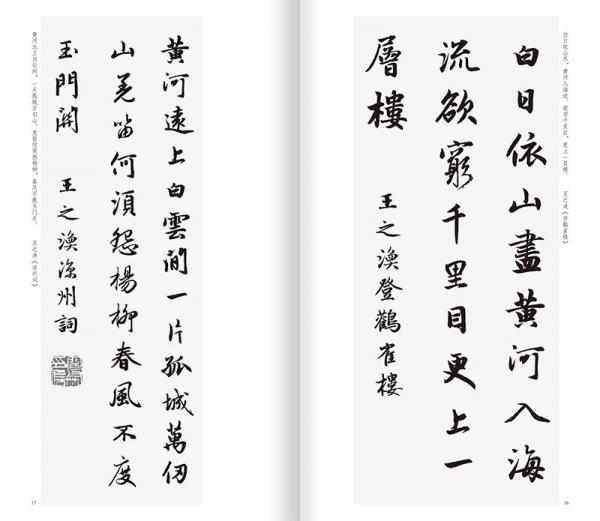 白日依山尽，黄河入海流。欲穷千里目，更上一层楼。 王之涣《登鹳雀楼》
白日依山盡黃河入海
流欲窮千里目更上一
層樓 王之渙登鸛雀樓
16
黃河遠上白雲間一片孤城萬仞
山羌笛何須怨楊柳春風不度
玉門關 王之渙涼州詞
黄河远上白云间，一片孤城万仞山。羌笛何须怨杨柳，春风不度玉门关。 王之涣《凉州词》
17